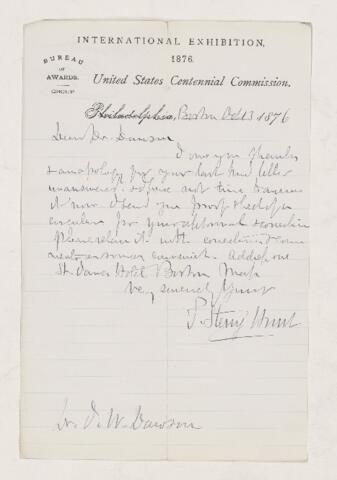 INTERNATIONAL EXHIBITION,
1876.
BUREAU
OF
AWARDS.
GROUP
United States Centennial Commission.
Philadelphia, Boston Oct 13 1876
Dear Dr. Dawson
I owe you thanks
& an apology for your last kind letter
unanswered. I have not time to answer
it now. I send you proof sheet of a
circular for your
Please return it with corrections & com
ments as soon as convenient. Address me
St. James Hotel Boston Mass
Very sincerely Yours
T. Sterry Hunt
Dr. J. W. Dawson